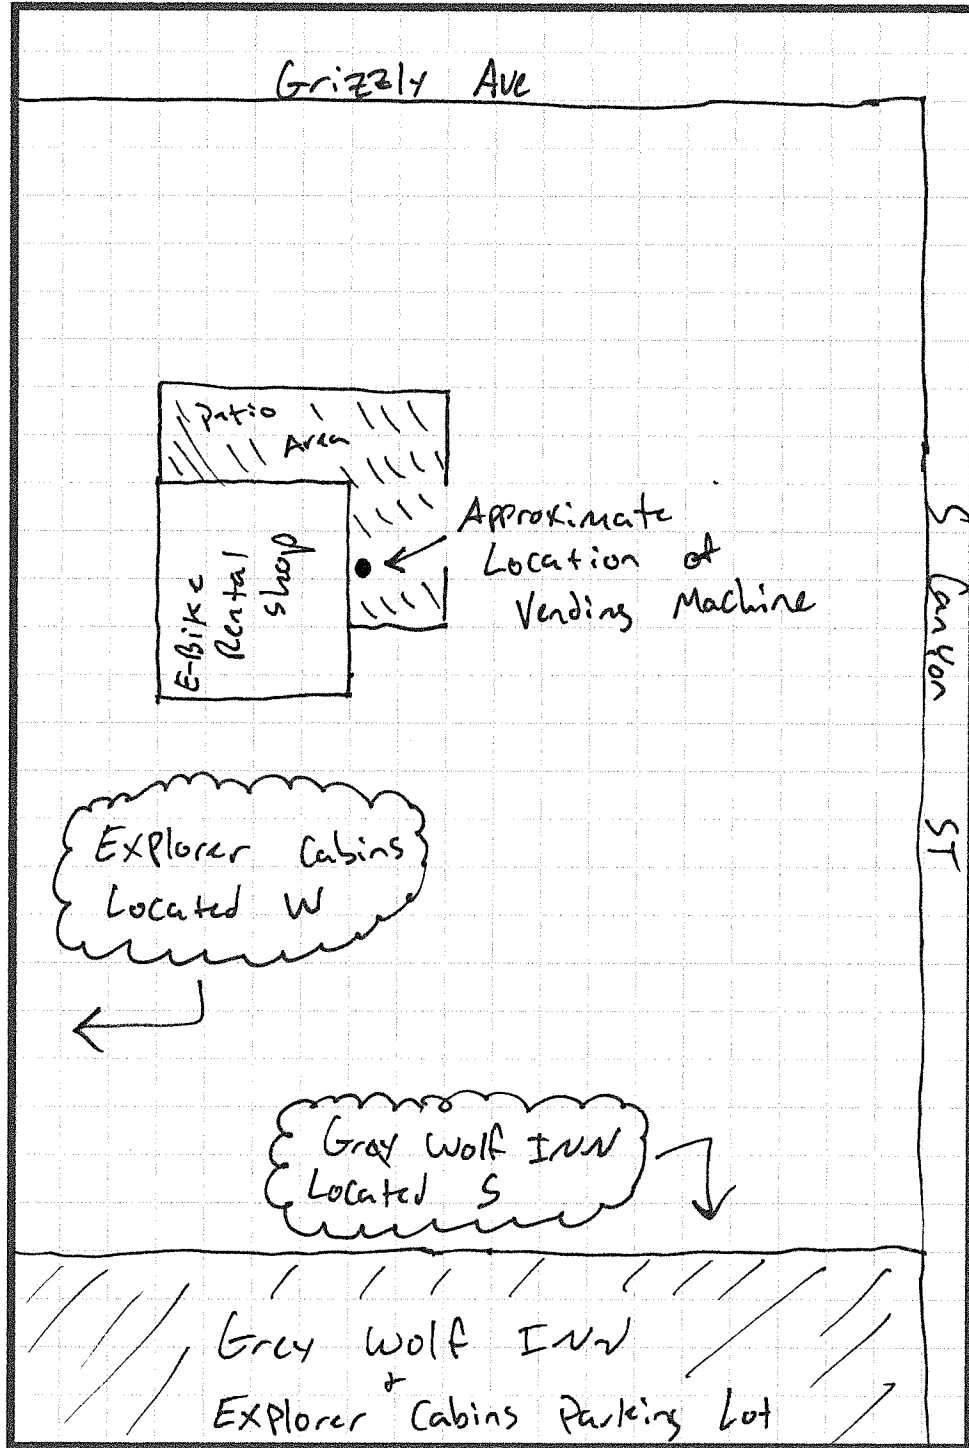 Grizzly Ave
Patio
Area
E-Bike
Rental
Shop
Approximate
Location of
Vending Machine
S Canyon ST
Explorer Cabins
Located W
Gray Wolf INN
Located S
Grey Wolf INN
+
Explorer Cabins Parking Lot